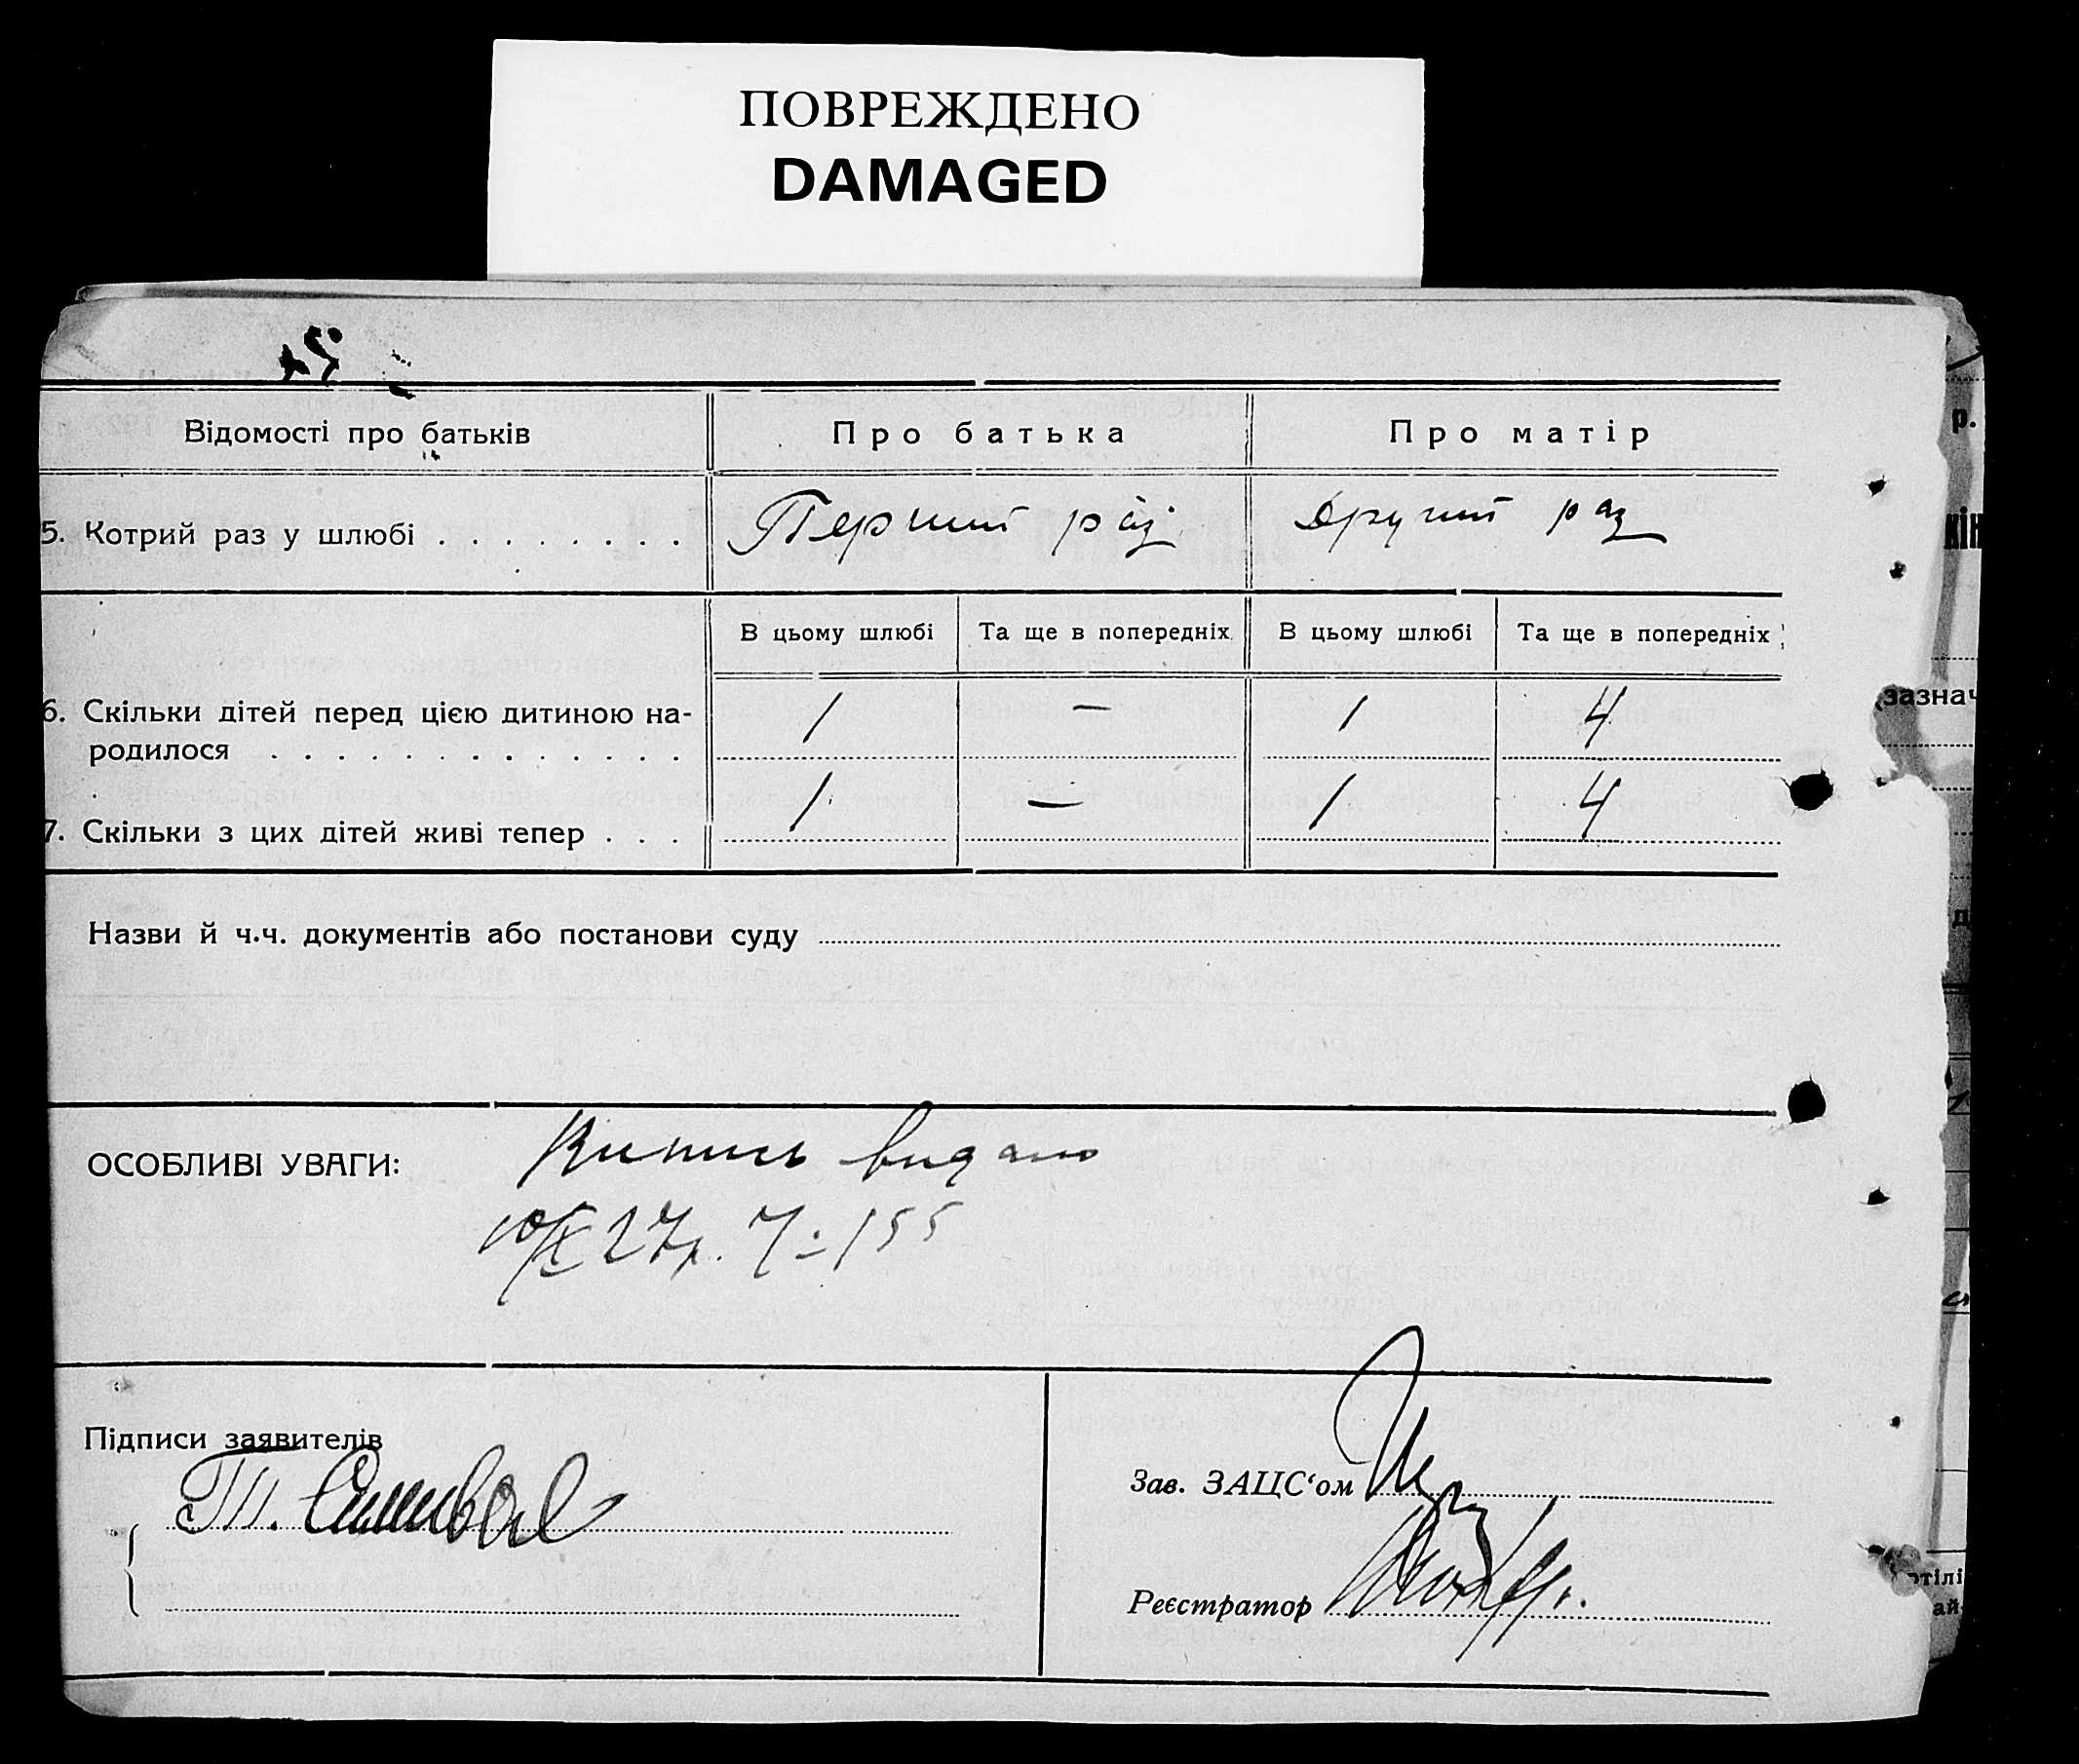 ПОВРЕЖДЕНО
DAMAGED
Відомості про батьків
Про батька
Про матір
р.
5. Котрий раз у шлюбі . . . . . . . .
Перший раз
Другий раз
кін
В цьому шлюбі
Та ще в попередніх
В цьому шлюбі
Та ще в попередніх
6. Скільки дітей перед цією дитиною на-
родилося . . . . . . . . . . . . .
1
—
1
4
(зазнач
7. Скільки з цих дітей живі тепер . . .
1
—
1
4
Назви й ч.ч. документів або постанови суду
ОСОБЛИВІ УВАГИ:
Випись видано
10/IX 27р. 155
Підписи заявителів
Зав. ЗАЦС‘ом
Реєстратор